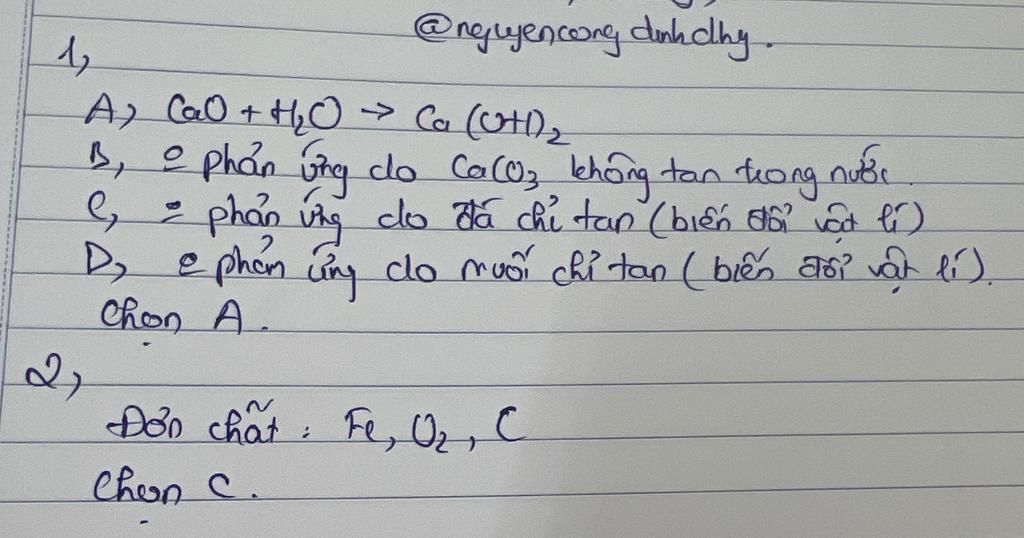 @nguyencongdinhdhy.
1,
A, CaO + H₂O → Ca(OH)₂
B, ⊖ phản ứng do CaCO₃ không tan trong nước.
C, ⊖ phản ứng do đá chỉ tan (biến đổi vật lí)
D, ⊖ phản ứng do muối chỉ tan (biến đổi vật lí).
Chọn A.
2,
Đơn chất: Fe, O₂, C
Chọn C.